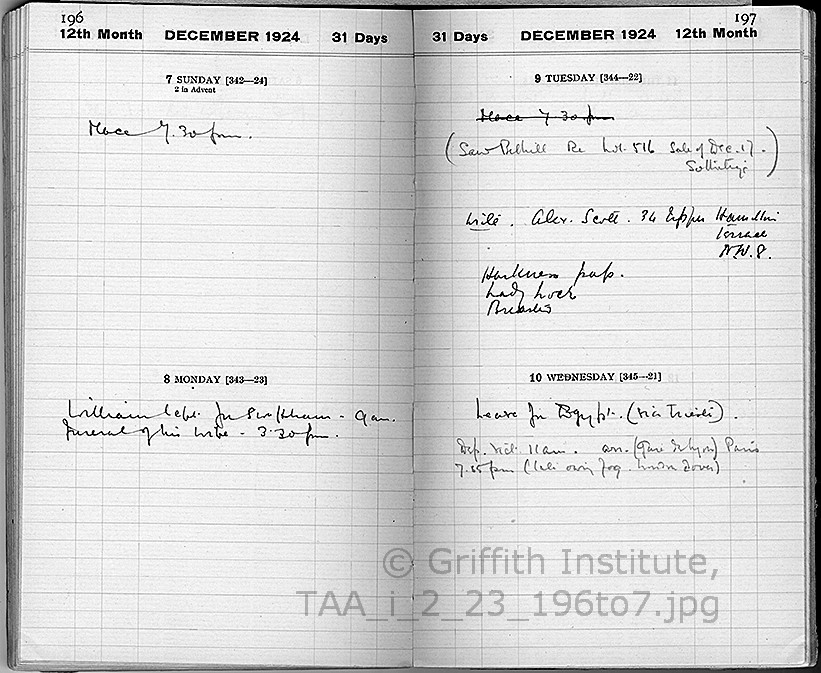 196
12th Month DECEMBER 1924 31 Days
7 SUNDAY [342—24]
2 in Advent
Mace 7.30 pm.
8 MONDAY [343—23]
William left for Swaffham - 9 am.
Funeral of his wife - 3.30 pm.
197
31 Days DECEMBER 1924 12th Month
9 TUESDAY [344—22]
Mace 7.30 pm
(Saw Re Lot. 516 Sale of Dec. 17.
Write. Alex. Scott. 34 Upper Hamilton
Terrace
N.W. 8.
Harkness
Lady
10 WEDNESDAY [345—21]
Leave for Egypt. (via Trieste).
Dep. Vict. 11 am. arr. (Gare de Lyon) Paris
7.55 pm (late owing fog. London Dover)
© Griffith Institute,
TAA_i_2_23_196to7.jpg